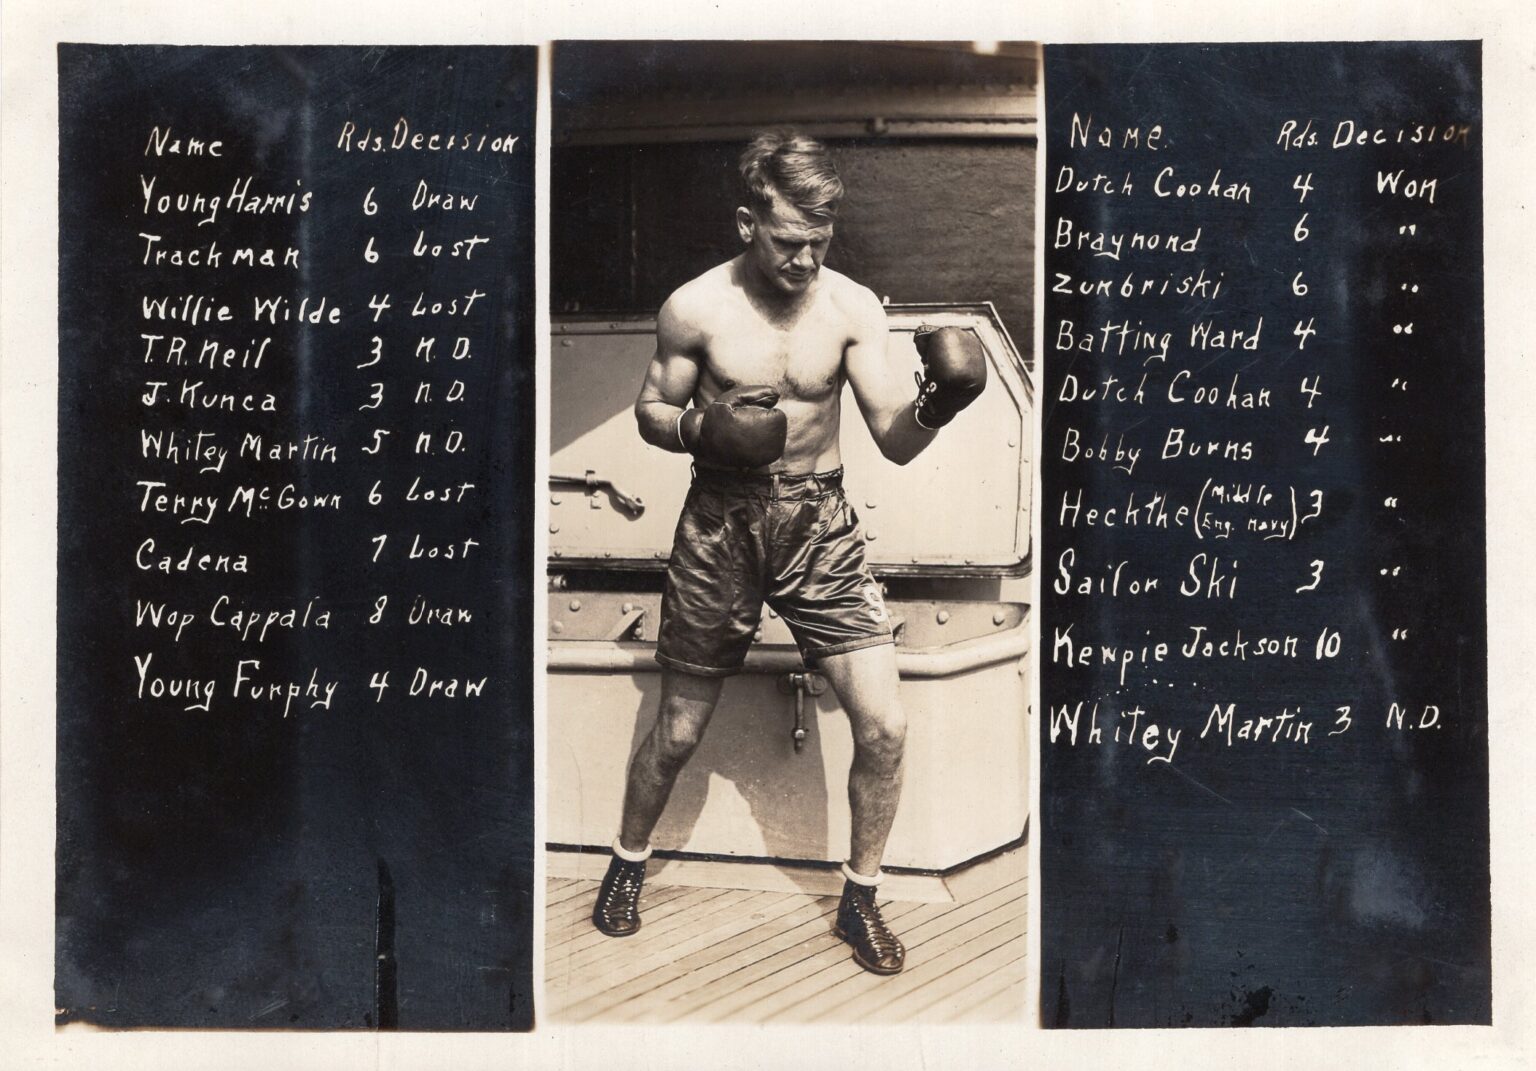 Name Rds. Decision
Young Harris 6 Draw
Trackman 6 Lost
Willie Wilde 4 Lost
T.R. Neil 3 N.D.
J. Kunca 3 N.D.
Whitey Martin 5 N.D.
Terry McGown 6 Lost
Cadena 7 Lost
Wop Cappala 8 Draw
Young Furphy 4 Draw
Name Rds. Decision
Dutch Coohan 4 Won
Braynond 6 "
Zunbriski 6 "
Batting Ward 4 "
Dutch Coohan 4 "
Bobby Burns 4 "
Heckthe (Middle Eng. Navy) 3 "
Sailor Ski 3 "
Kewpie Jackson 10 "
Whitey Martin 3 N.D.